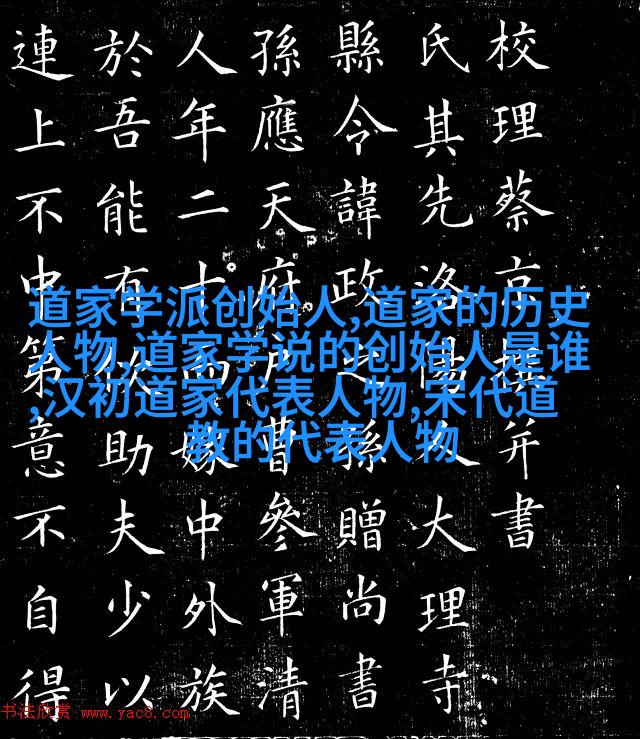 道家学派创始人,道家的历史
人物,道家学说的创始人是谁
,汉初道家代表人物,宋代道
教的代表人物
校理蔡京撰并書
氏其先洛陽人大理寺
縣令諱政之孫贈尚書
孫應天府戶曹參軍清
人年二十而嫁中外族
於吾能有攸助夫少以
連上不中第意不自得
书法欣赏 www.yac8.com